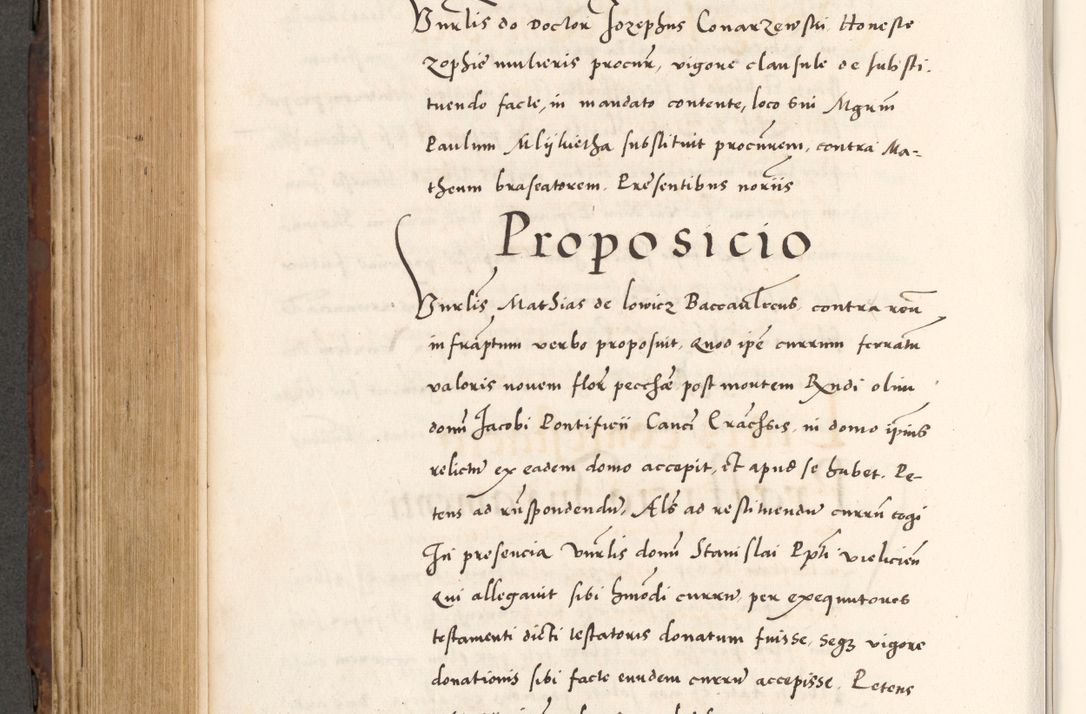 Vnrlis do Doctor Jozephus Conarzewski Honeste
zophie mulieris procur, vigore clausule de substi-
tuendo facte, in mandato contente, loco sui Mgrm
Paulum Mlijkietha substituit procurem, contra Ma-
theum braseatorem. Presentibus noriis
Proposicio
Vnrlis Mathias de lowicz Baccaulreus contra reu
infraptum verbo proposuit, Quod ipe currum ferratu
valoris novem flor pecchæ post mortem Rndi olim
domi Jacobi Pontificii Canci Crachsis, in domo ipius
relictu ex eadem domo accepit, et apud se habet. Pe-
tens ad rnspondendu, Als ad restituendu curru cogi
In presencia Vnrlis domi Stanislai Ppti vielicien
Qui allegavit sibi hmodi curru per exequutores
testamenti dicti testatoris donatum fuisse, seqz vigore
donationis sibi facte eundem curru accepisse. Petens